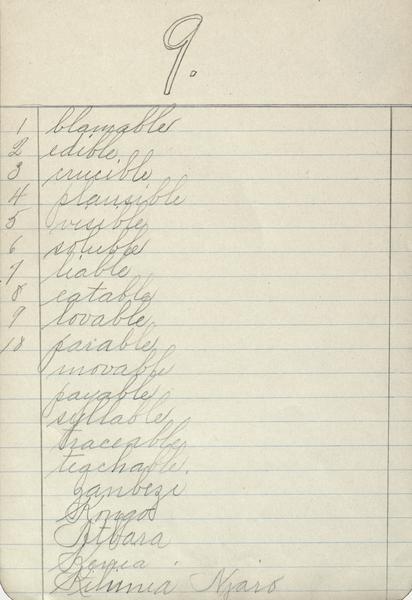 9.
1 blamable
2 edible
3 crucible
4 plausible
5 visible
6 soluble
7 liable
8 eatable
9 lovable
10 parable
movable
payable
syllable
traceable
teachable.
Zanbezi
Kongo
Atbara
Kenia
Kilmia Njaro